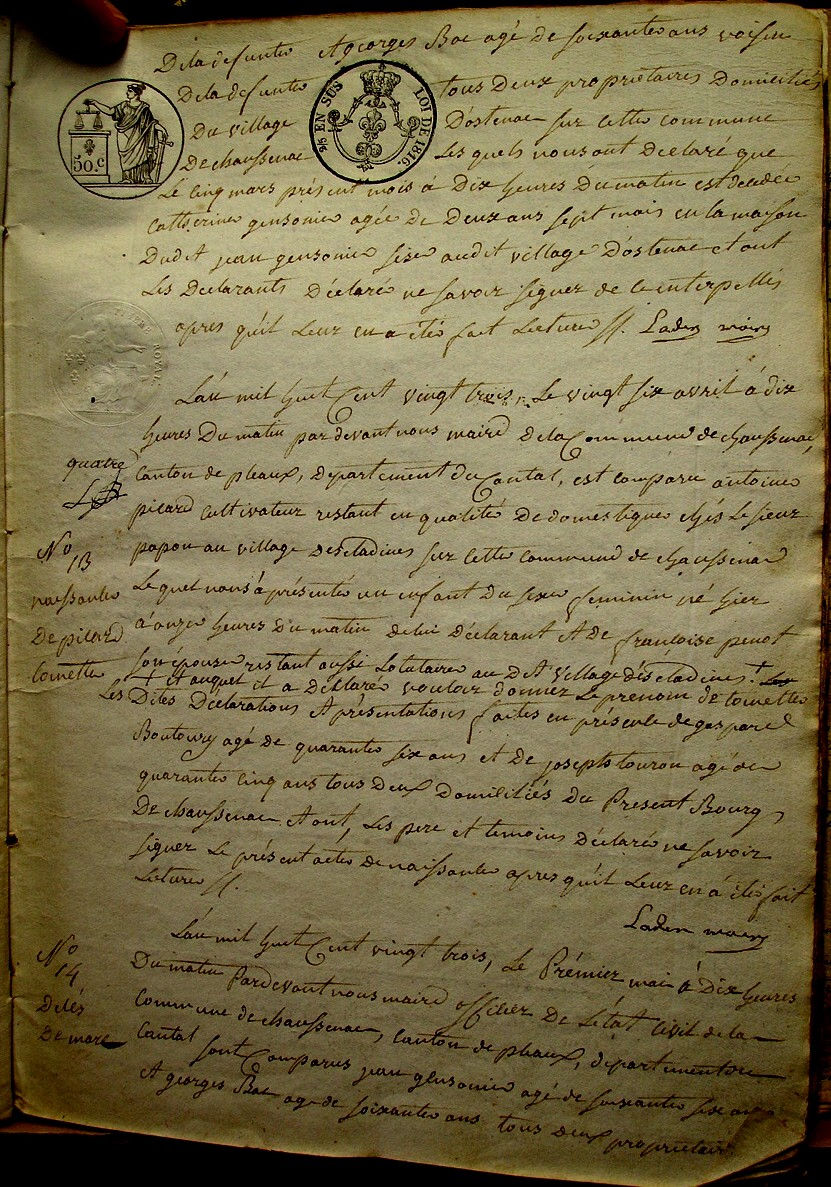 De la defunte A georges Bac agé de soixante ans voisin
De la defunte tous Deux proprietaires Domiciliés
Du village D'ostenac sur cette commune
De chaussenac Les quels nous ont Declaré que
Le cinq mars présent mois à Dix heures Du matin est decedée
Catherine gensonie agée De Deux ans sept mois en la maison
Dudit jean gensonie sise audit village D'ostenac et ont
Les Declarants Déclaré ne savoir signer de ce interpellés
apres qu'il Leur en a été fait Lecture //. Laden maire
50.C
9/5 EN SUS LOI DE 1816.
TIMBRE ROYAL
L'an mil huit Cent vingt trois, Le vingt six avril à dix
heures Du matin par devant nous maire De la Commune de chaussenac,
Canton de pleaux, Departement du Cantal, est comparu antoine
picard Cultivateur restant en qualité De domestique chés Le sieur
papon au village Des cladines sur cette commune de chaussenac
Le quel nous a présenté un enfant Du sexe feminin né hier
à onze heures Du matin De lui Déclarant A De françoise penot
son épouse restant aussi Locataire au Dit village Dés cladines. +
+ A auquel il a Déclaré vouloir donner Le prenom de tomette
Les Dites Déclarations A présentations faites en présence de gaspard
Boutoury agé de quarante six ans et De joseph touron agé de
quarante cinq ans tous Deux Domiciliés Du Present Bourg
De chaussenac A ont, Les pere et temoins Déclaré ne savoir
signer Le présent acte de naissance apres qu'il Leur en à été fait
Lecture //.
Laden maire
quatre
No
13
naissance
De picard
tomette
L'an mil huit Cent vingt trois, Le Prémier mai à Dix heures
Du matin Pardevant nous maire officier De L'état Civil de la
Commune de chaussenac, Canton de pleaux, département du
Cantal sont Comparus jean gensonie agé de soixante six ans
A georges Bac agé de soixante ans tous deux proprietair
No
14
Décés
De marc